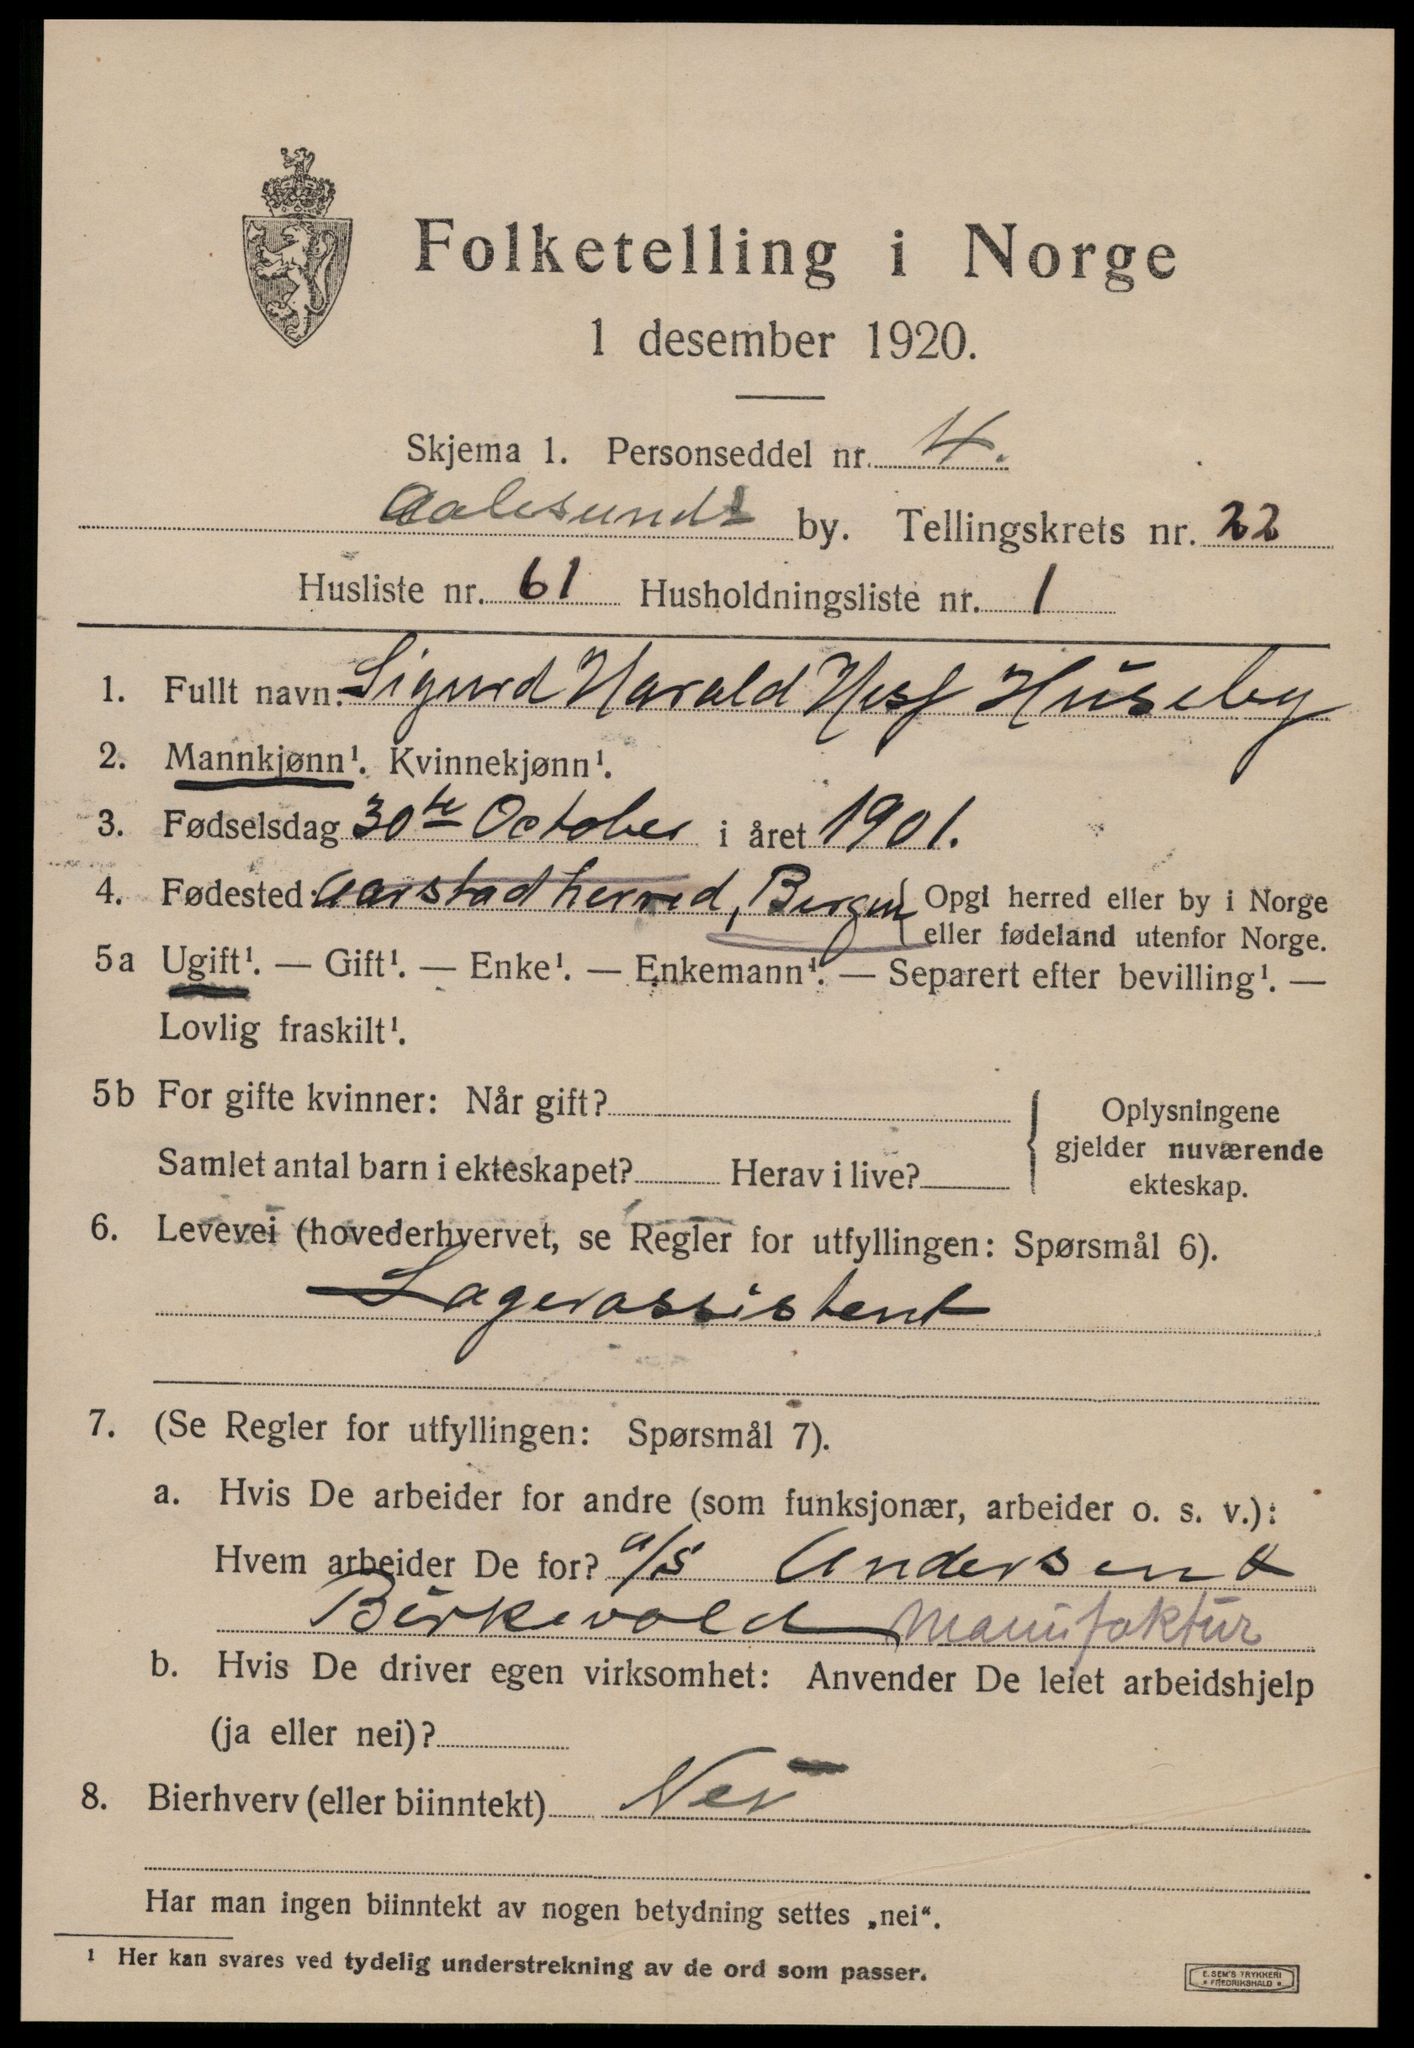 Folketelling i Norge
1 desember 1920.
Skjema 1. Personseddel nr. 4.
Aalesunds by. Tellingskrets nr. 22
Husliste nr. 61 Husholdningsliste nr. 1
1. Fullt navn: Sigurd Harald Huseby
2. Mannkjønn¹. Kvinnekjønn¹.
3. Fødselsdag 30te October i året 1901.
4. Fødested: Aarstad herred, Bergen { Opgi herred eller by i Norge
eller fødeland utenfor Norge.
5a Ugift¹. — Gift¹. — Enke¹. — Enkemann¹. — Separert efter bevilling¹. —
Lovlig fraskilt¹.
5b For gifte kvinner: Når gift?
Samlet antal barn i ekteskapet? Herav i live?
{ Oplysningene
gjelder nuværende
ekteskap.
6. Levevei (hovederhvervet, se Regler for utfyllingen: Spørsmål 6).
Lagerassistent
7. (Se Regler for utfyllingen: Spørsmål 7).
a. Hvis De arbeider for andre (som funksjonær, arbeider o. s. v.):
Hvem arbeider De for? a/s Andersen &
Birkevold Manufaktur
b. Hvis De driver egen virksomhet: Anvender De leiet arbeidshjelp
(ja eller nei)?
8. Bierhverv (eller biinntekt) Nei
Har man ingen biinntekt av nogen betydning settes „nei“.
¹ Her kan svares ved tydelig understrekning av de ord som passer.
E. SEM'S TRYKKERI
* FREDRIKSHALD *